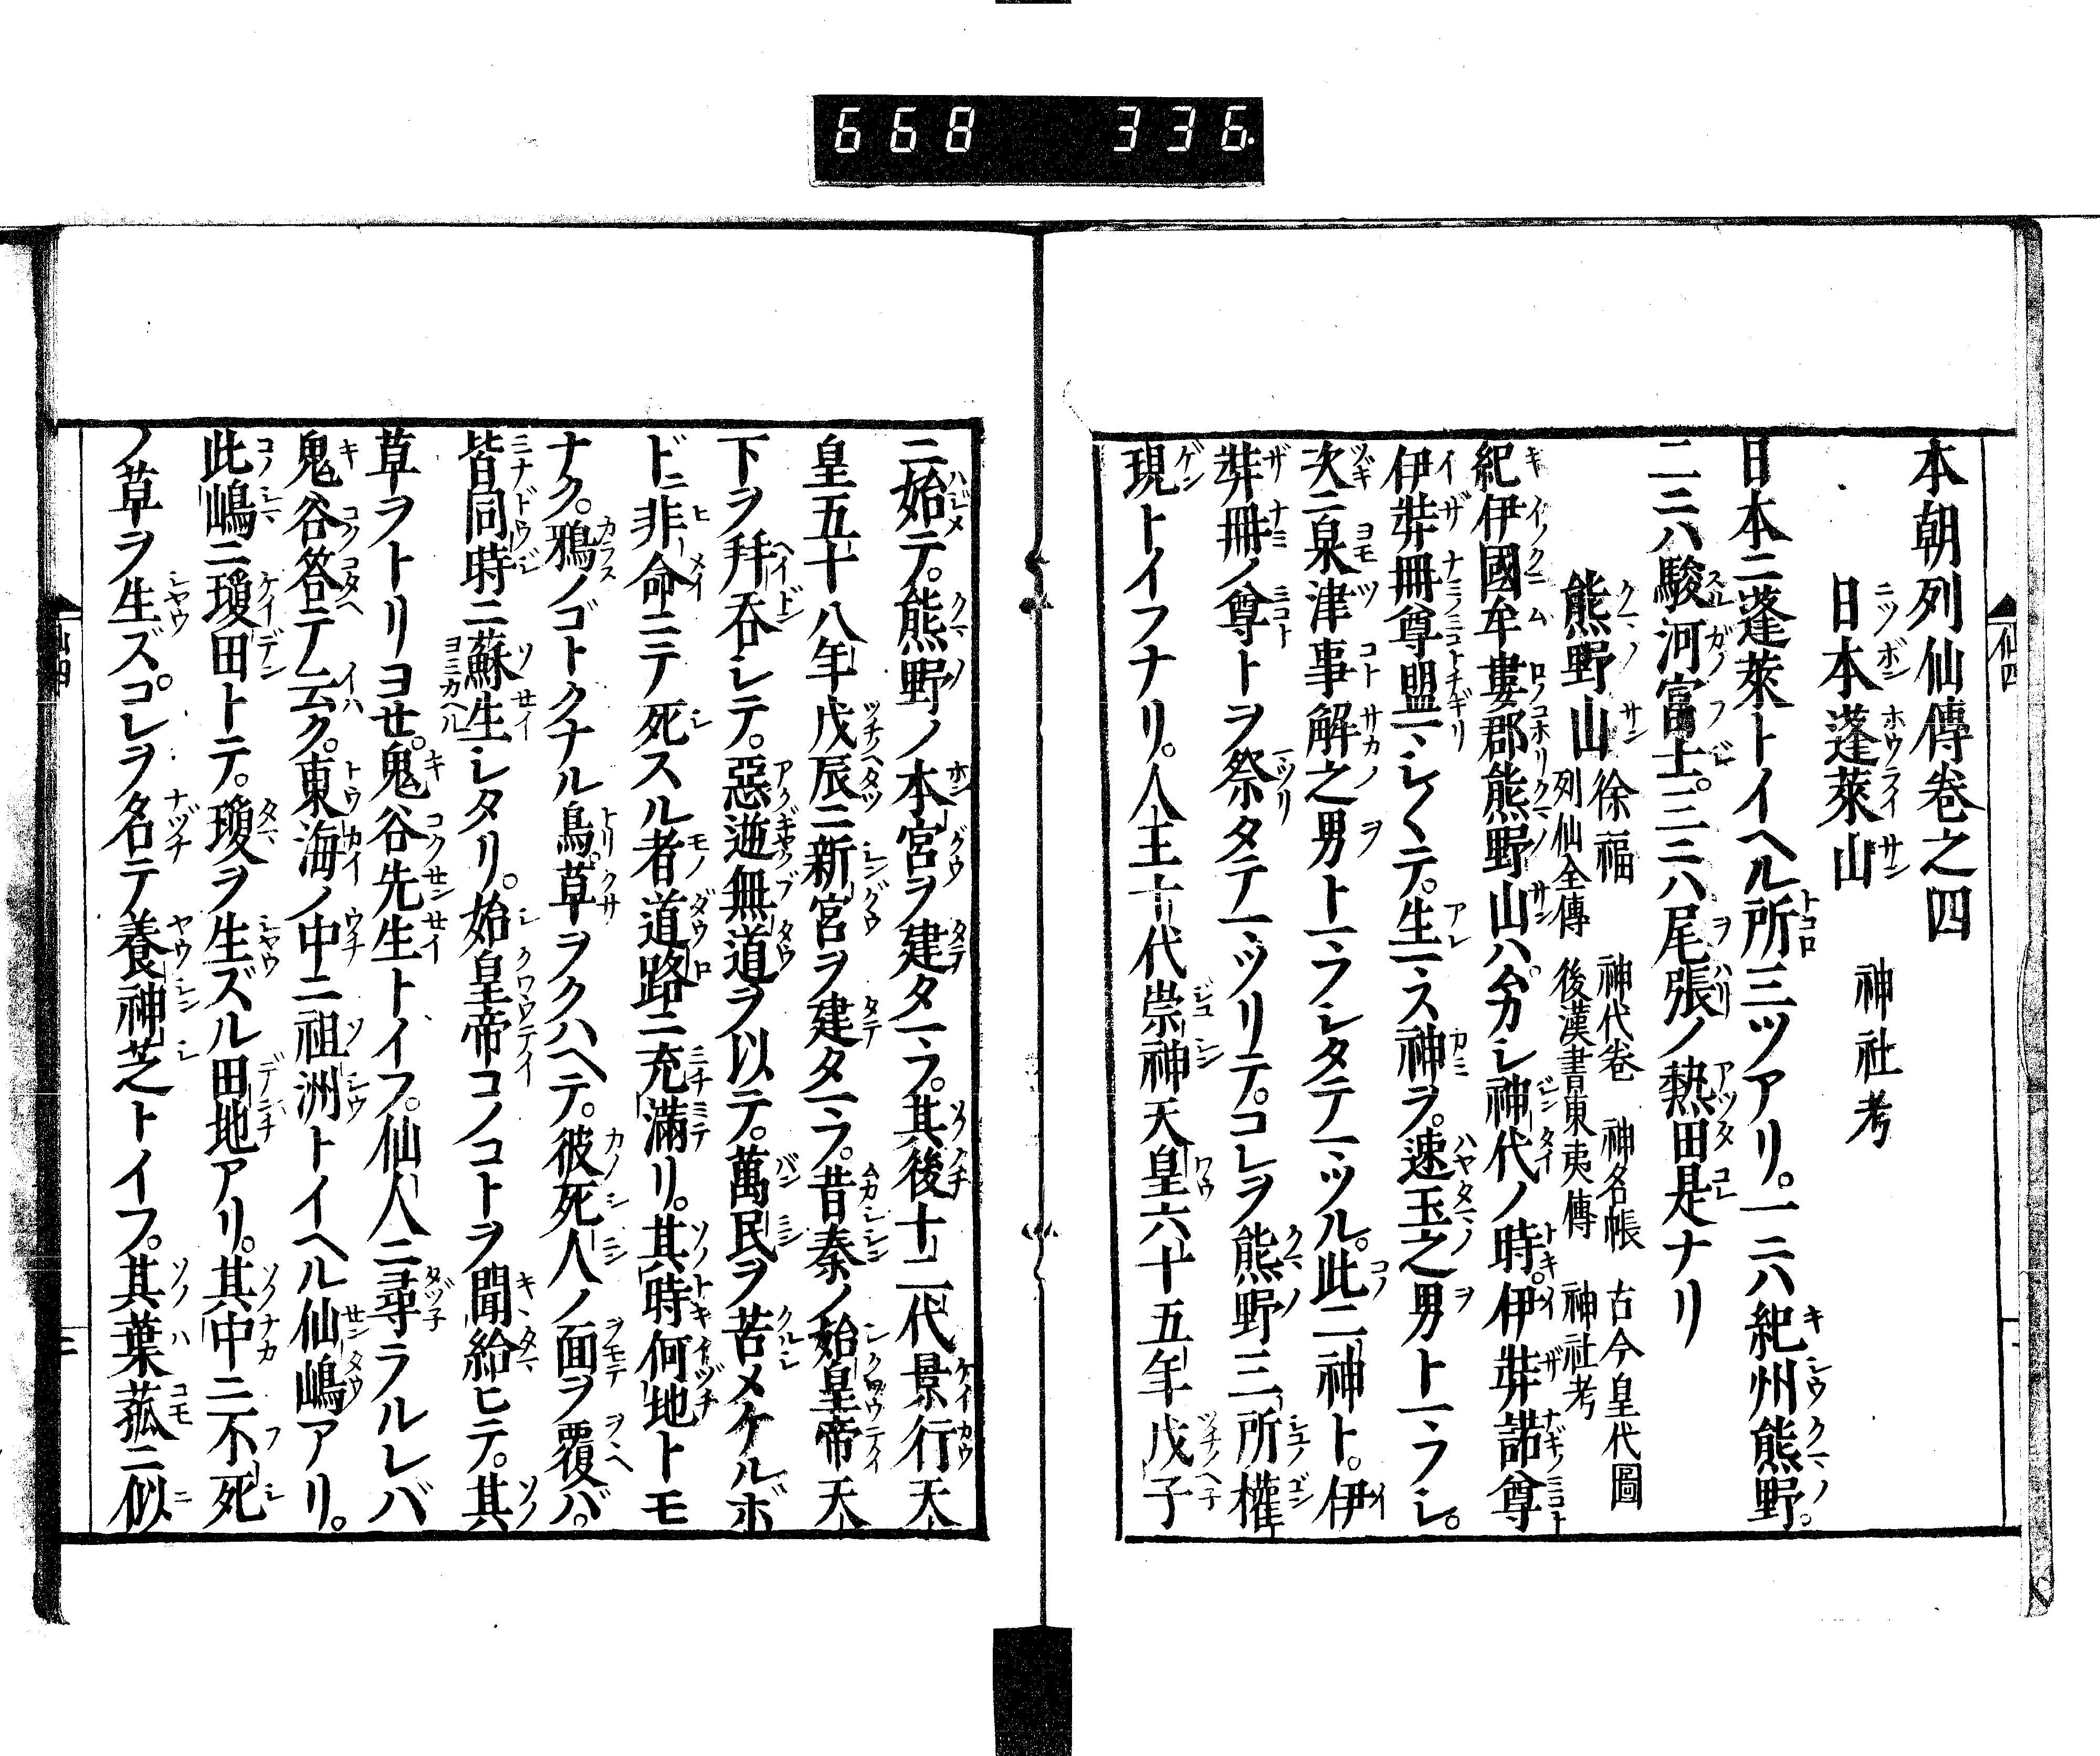 668 336
仙四
本朝列仙傳卷之四
日本蓬萊山 神社考
日本ニ蓬萊トイヘル所三ツアリ。一ニハ紀州熊野。
二ニハ駿河富士。三ニハ尾張ノ熱田是ナリ
熊野山 徐福 神代卷 神名帳 古今皇代圖
列仙全傳 後漢書東夷傳 神社考
紀伊國牟婁郡熊野山ハ。ムカシ神代ノ時。伊弉諾尊
伊弉冊尊盟マシ〱テ。生マス神ヲ。速玉之男トマフシ。
次ニ泉津事解之男トマフシタテマツル。此二神ト。伊
弉冊ノ尊トヲ祭タテマツリテ。コレヲ熊野三所權
現トイフナリ。人王十代崇神天皇六十五年戊子
ニ始テ。熊野ノ本宮ヲ建タマフ。其後十二代景行天
皇五十八年戊辰ニ新宮ヲ建タマフ。昔秦ノ始皇帝天
下ヲ拜呑シテ。惡逆無道ヲ以テ。萬民ヲ苦メケルホ
ドニ非命ニテ死スル者道路ニ充滿リ。其時何地トモ
ナク。鴉ノゴトクナル鳥。草ヲクハヘテ。彼死人ノ面ヲ覆バ。
皆同時ニ蘇生シタリ。始皇帝コノコトヲ聞給ヒテ。其
草ヲトリヨせ。鬼谷先生トイフ。仙人ニ尋ラルレバ
鬼谷答テ云ク。東海ノ中ニ祖洲トイヘル仙嶋アリ。
此嶋ニ瓊田トテ。瓊ヲ生ズル田地アリ。其中ニ不死
ノ草ヲ生ズ。コレヲ名テ養神芝トイフ。其葉菰ニ似
仙四